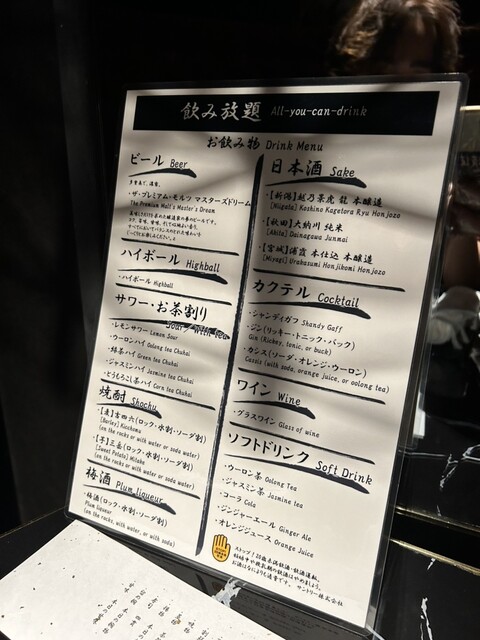 飲み放題 All-you-can-drink
お飲み物 Drink Menu
ビール Beer
・ザ・プレミアム・モルツ マスターズドリーム
The Premium Malt's Master's Dream
ハイボール Highball
・ハイボール Highball
サワー・お茶割り
Sour / With tea
・レモンサワー Lemon Sour
・ウーロンハイ Oolong tea Chuhai
・緑茶ハイ Green tea Chuhai
・ジャスミンハイ Jasmine tea Chuhai
・とうもろこし茶ハイ Corn tea Chuhai
焼酎 Shochu
・【麦】吉四六(ロック・水割・ソーダ割)
[Barley] Kicchomu
(on the rocks or with water or soda water)
・【芋】三岳(ロック・水割・ソーダ割)
[Sweet Potato] Mitake
(on the rocks or with water or soda water)
梅酒 Plum liqueur
・梅酒(ロック・水割・ソーダ割)
Plum liqueur
(on the rocks, with water, or with soda)
日本酒 Sake
・【新潟】越乃景虎 龍 本醸造
[Niigata] Koshino Kagetora Ryu Honjozo
・【秋田】大納川 純米
[Akita] Dainagawa Junmai
・【宮城】浦霞 本仕込 本醸造
[Miyagi] Urakasumi Honjikomi Honjozo
カクテル Cocktail
・シャンディガフ Shandy Gaff
・ジン(リッキー・トニック・バック)
Gin (Rickey, tonic, or buck)
・カシス(ソーダ・オレンジ・ウーロン)
Cassis (with soda, orange juice, or oolong tea)
ワイン Wine
・グラスワイン Glass of wine
ソフトドリンク Soft Drink
・ウーロン茶 Oolong Tea
・ジャスミン茶 Jasmine tea
・コーラ Cola
・ジンジャーエール Ginger Ale
・オレンジジュース Orange Juice
ストップ!20歳未満飲酒・飲酒運転。
妊娠中や授乳期の飲酒はやめましょう。
お酒はなによりも適量です。 サントリー株式会社